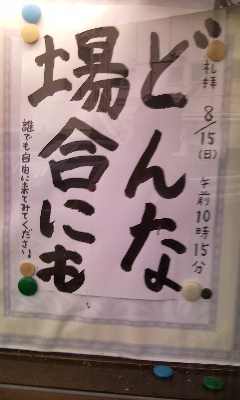 礼拝 8/15(日) 午前10時15分
どんな
場合にも
誰でも自由に来てみてください。